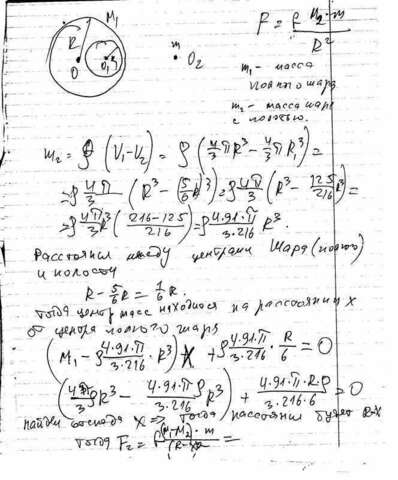 M₁
R
O
O₁
m
O₂
F = ρ M₂·m / R²
m₁ - масса
полного шара
m₂ - масса шара
с полостью.
m₂ = ρ (V₁-V₂) = ρ (4/3 πR³ - 4/3 πR₁³) =
= ρ 4π/3 (R³ - (5/6 R)³) = ρ 4π/3 (R³ - 125/216 R³) =
= ρ 4π/3 R³ (216-125 / 216) = ρ 4·91·π / 3·216 R³.
Расстояния между центрами шара (полного)
и полости
R - 5/6 R = 1/6 R.
тогда центр масс находится на расстоянии x
от центра полного шара
(M₁ - ρ 4·91·π / 3·216 · R³) x + ρ 4·91·π / 3·216 · R/6 = 0
(4π/3 ρR³ - 4·91·π / 3·216 ρ R³) + 4·91·π·R·ρ / 3·216·6 = 0
найдём отсюда x ⇒ тогда расстояния будет R-x
тогда F₂ = (M₁-M₂)·m / (R-x)² =